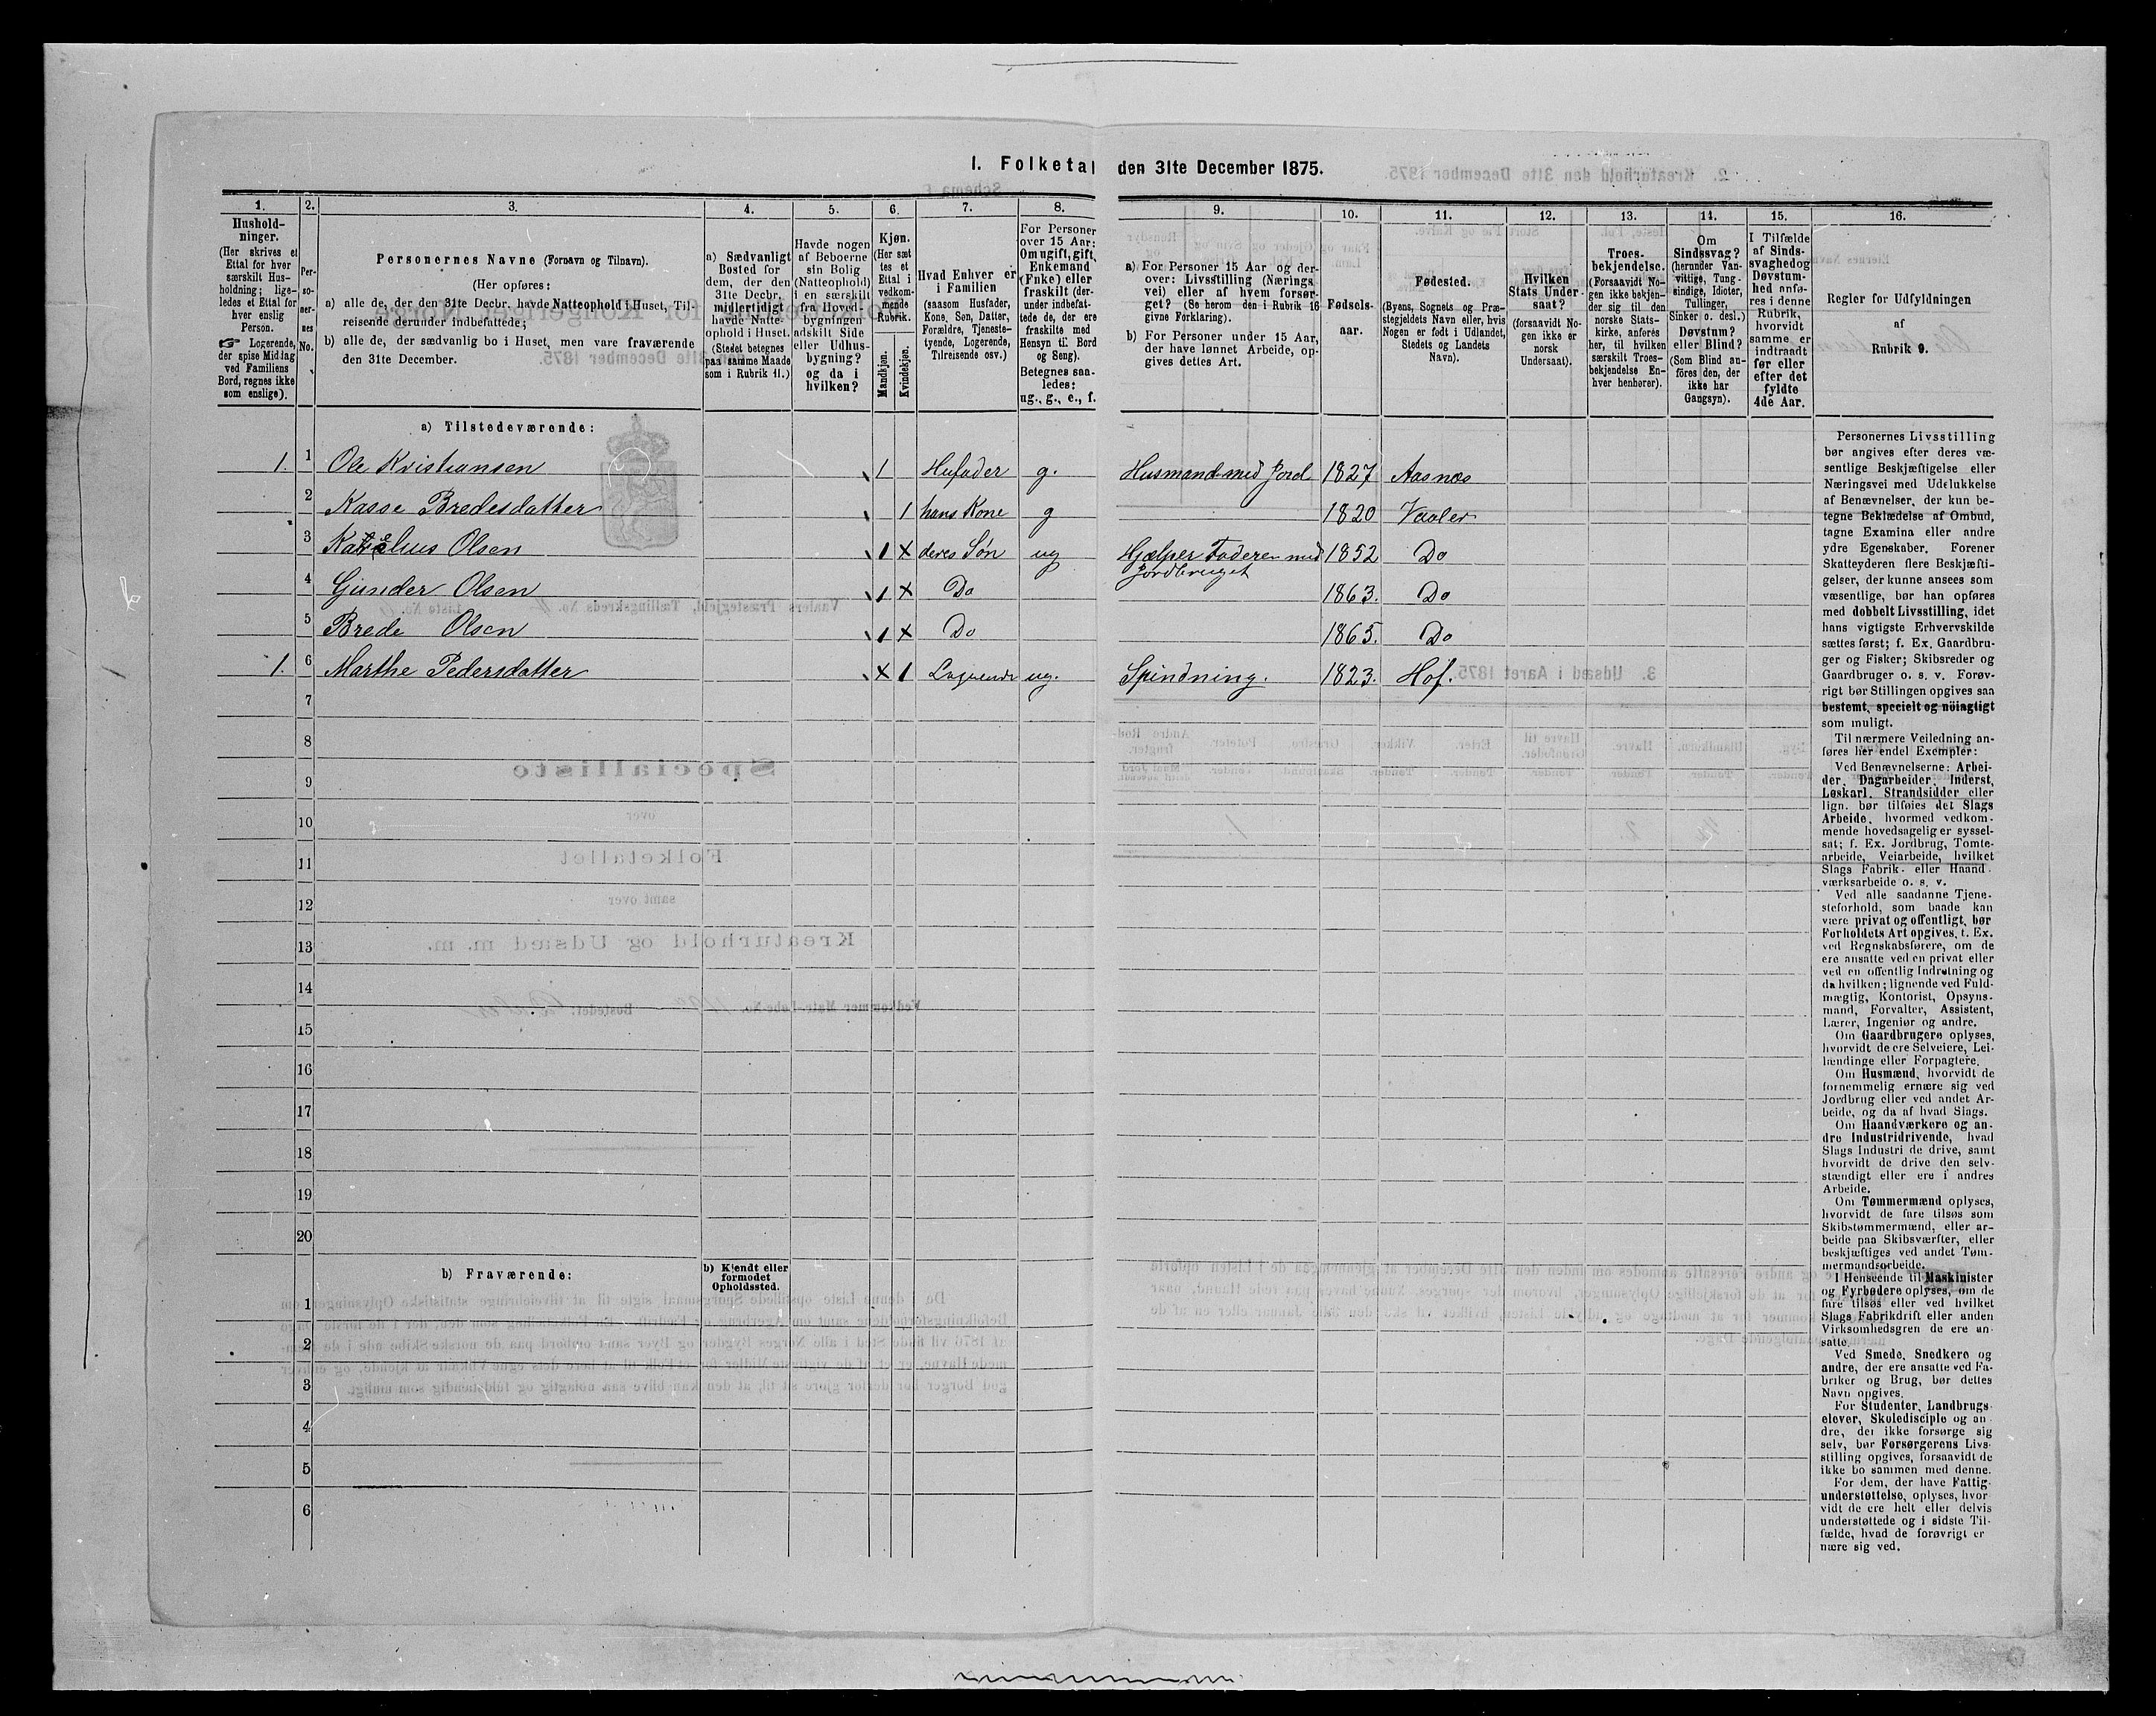 I. Folketal den 31te December 1875.
1.
Hushold-
ninger.
(Her skrives et
Ettal for hver
særskilt Hus-
holdning; lige-
ledes et Ettal for
hver enslig
Person.
☞ Logerende,
der spise Middag
ved Familiens
Bord, regnes ikke
som enslige).
2.
Per-
so-
ner-
nes
No.
3.
Personernes Navne (Fornavn og Tilnavn).
(Her opføres:
a) alle de, der den 31te Decbr. havde Natteophold i Huset, Til-
reisende derunder indbefattede;
b) alle de, der sædvanlig bo i Huset, men vare fraværende
den 31te December.
4.
a) Sædvanligt
Bosted for
dem, der den
31te Decbr.
midlertidigt
havde Natte-
ophold i Huset.
(Stedet betegnes
paa samme Maade
som i Rubrik 11.)
5.
Havde nogen
af Beboerne
sin Bolig
(Natteophold)
i en særskilt
fra Hoved-
bygningen
adskilt Side
eller Udhus-
bygning?
og da i
hvilken?
6.
Kjøn.
(Her sæt
tes et
Ettal i
vedkom-
mende
Rubrik.
Mandkjøn.
Kvindekjøn.
7.
Hvad Enhver er
i Familien
(saasom Husfader,
Kone, Søn, Datter,
Forældre, Tjeneste-
tyende, Logerende,
Tilreisende osv.)
8.
For Personer
over 15 Aar:
Om ugift, gift,
Enkemand
(Enke) eller
fraskilt (der-
under indbefat-
tede de, der ere
fraskilte med
Hensyn til Bord
og Seng).
Betegnes saa-
ledes:
ug., g., e., f.
9.
a) For Personer 15 Aar og der-
over: Livsstilling (Nærings
vei) eller af hvem forsør-
get? (Se herom den i Rubrik 16
givne Forklaring).
b) For Personer under 15 Aar,
der have lønnet Arbeide, op-
gives dettes Art.
10.
Fødsels-
aar.
11.
Fødested.
(Byens, Sognets og Præ-
stegjeldets Navn eller, hvis
Nogen er født i Udlandet,
Stedets og Landets
Navn).
12.
Hvilken
Stats Under-
saat?
(forsaavidt No-
gen ikke er
norsk
Undersaat).
13.
Troes-
bekjendelse.
(Forsaavidt No-
gen ikke bekjen-
der sig til den
norske Stats-
kirke, anføres
her, til hvilken
særskilt Troes-
bekjendelse En-
hver henhører).
14.
Om
Sindssvag?
(herunder Van-
vittige, Tung-
sindige, Idioter,
Tullinger,
Sinker o. desl.)
Døvstum?
eller Blind?
(Som Blind an-
føres den, der
ikke har
Gangsyn).
15.
I Tilfælde
af Sinds-
svaghed og
Døvstum-
hed anfø-
res i denne
Rubrik,
hvorvidt
samme er
indtraadt
før eller
efter det
fyldte
4de Aar.
16.
Regler for Udfyldningen
af
Rubrik 9.
a) Tilstedeværende:
1. 1 Ole Kristiansen 1 Hufader g. Husmand med Jord 1827 Aasnæs
2 Kasse Bredesdatter 1 hans Kone g 1820 Vaaler
3 Olsen 1 × deres Søn ug Hjælper Faderen med Jordbruget 1852 Do
4 Gunder Olsen 1 × Do 1863. Do
5 Brede Olsen 1 × Do 1865. Do
1. 6 Marthe Pedersdatter × 1 Logerende ug. Spindning. 1823. Hof.
7
8
9
10
11
12
13
14
15
16
17
18
19
20
b) Fraværende:
b) Kjendt eller
formodet
Opholdssted.
1
2
3
4
5
6
Personernes Livsstilling
bør angives efter deres væ-
sentlige Beskjæftigelse eller
Næringsvei med Udelukkelse
af Benævnelser, der kun be-
tegne Beklædelse af Ombud,
tagne Examina eller andre
ydre Egenskaber. Forener
Skatteyderen flere Beskjæfti-
gelser, der kunne ansees som
væsentlige, bør han opføres
med dobbelt Livsstilling, idet
hans vigtigste Erhvervskilde
sættes først; f. Ex. Gaardbru-
ger og Fisker; Skibsreder og
Gaardbruger o. s. v. Forøv-
rigt bør Stillingen opgives saa
bestemt, specielt og nöiagtigt
som muligt.
Til nærmere Veiledning an-
føres her endel Exempler:
Ved Benævnelserne: Arbei-
der, Dagarbeider, Inderst,
Løskarl, Strandsidder eller
lign. bør tilføies det Slags
Arbeide, hvormed vedkom-
mende hovedsagelig er syssel-
sat; f. Ex. Jordbrug, Tomte-
arbeide, Veiarbeide, hvilket
Slags Fabrik- eller Haand
værksarbeide o. s. v.
Ved alle saadanne Tjene-
steforhold, som baade kan
være privat og offentligt, bør
Forholdets Art opgives, t. Ex.
ved Regnskabsførere, om de
ere ansatte ved en privat eller
ved en offentlig Indretning og
da hvilken; lignende ved Fuld-
mægtig, Kontorist, Opsyns-
mand, Forvalter, Assistent,
Lærer, Ingeniør og andre.
Om Gaardbrugere oplyses,
hvorvidt de ere Selveiere, Lei-
lændinge eller Forpagtere.
Om Husmænd, hvorvidt de
fornemmelig ernære sig ved
Jordbrug eller ved andet Ar-
beide, og da af hvad Slags.
Om Haandværkere og an-
dre Industridrivende, hvad
Slags Industri de drive, samt
hvorvidt de drive den selv-
stændigt eller ere i andres
Arbeide.
Om Tømmermænd oplyses,
hvorvidt de fare tilsøs som
Skibstømmermænd, eller ar-
beide paa Skibsværfter, eller
beskjæftiges ved andet Tøm-
mermandsarbeide.
I Henseende til Maskinister
og Fyrbødere oplyses, om de
fare tilsøs eller ved hvilket
Slags Fabrikdrift eller anden
Virksomhedsgren de ere an-
satte.
Ved Smede, Snedkere og
andre, der ere ansatte ved Fa-
briker og Brug, bør dettes
Navn opgives.
For Studenter, Landbrugs
elever, Skoledisciple og an-
dre, der ikke forsørge sig
selv, bør Forsørgerens Livs-
stilling opgives, forsaavidt de
ikke bo sammen med denne.
For dem, der have Fattig-
understøttelse, oplyses, hvor
vidt de ere helt eller delvis
understøttede og i sidste Til-
fælde, hvad de forøvrigt er
nære sig ved.